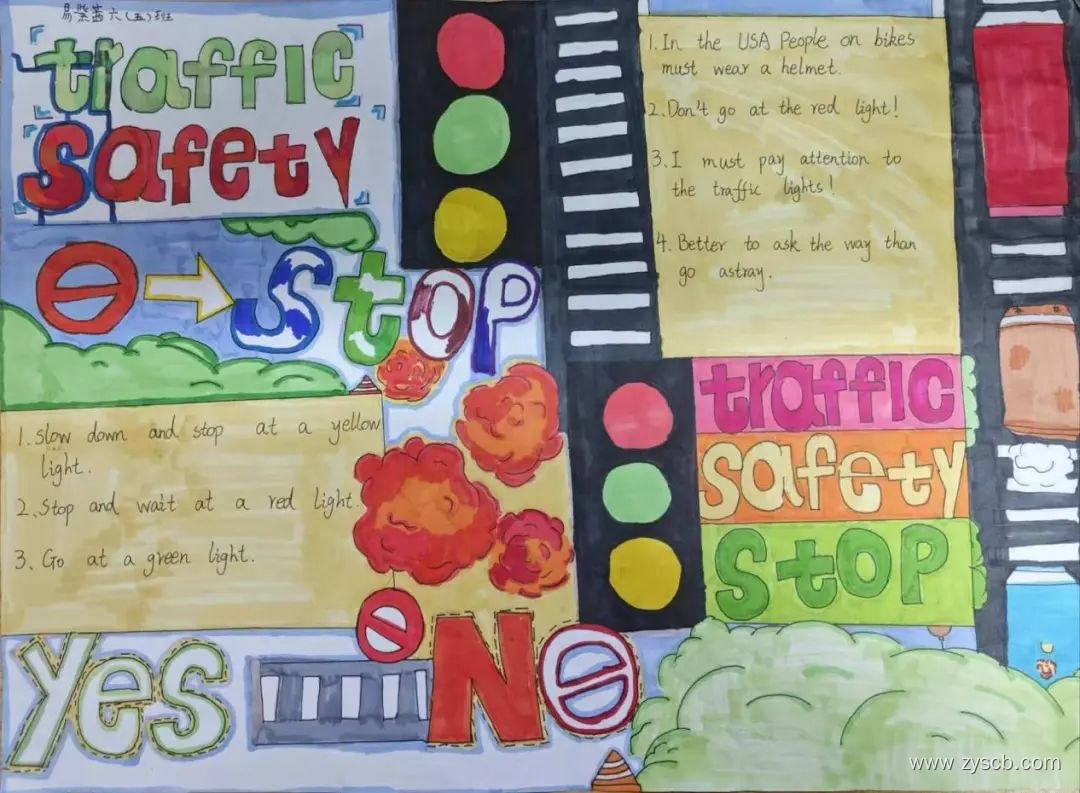 易紫茜 六(五)班
traffic
safety
stop
1. Slow down and stop at a yellow
light.
2. Stop and wait at a red light.
3. Go at a green light.
Yes
No
1. In the USA People on bikes
must wear a helmet.
2. Don't go at the red light!
3. I must pay attention to
the traffic lights!
4. Better to ask the way than
go astray.
traffic
safety
stop
www.zyscb.com